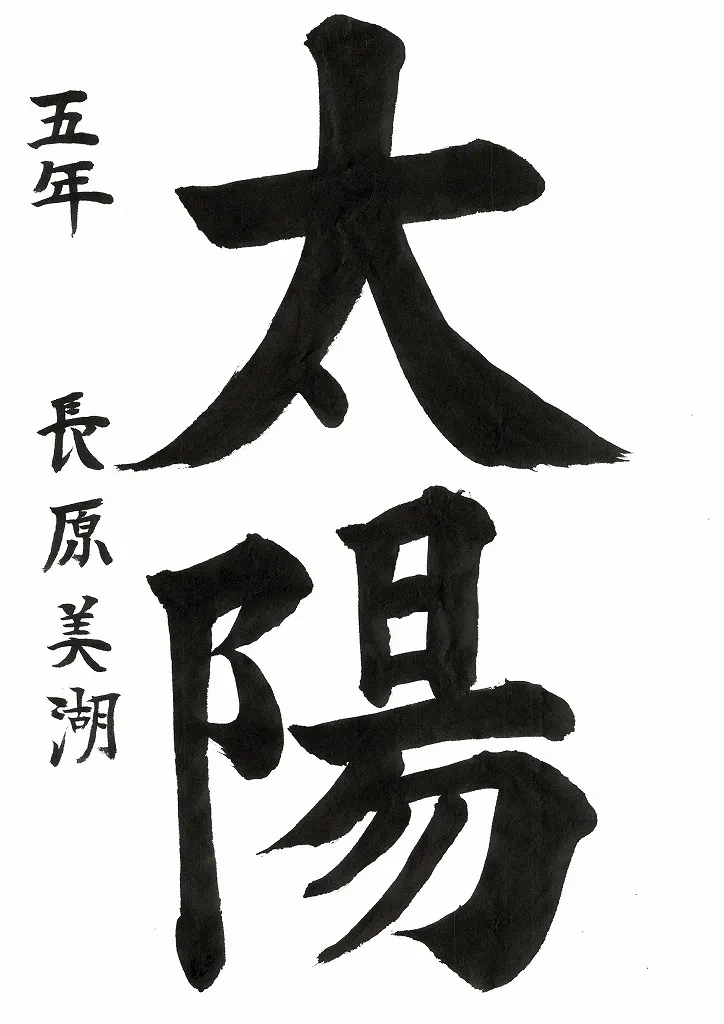 太陽
五年 長原美湖